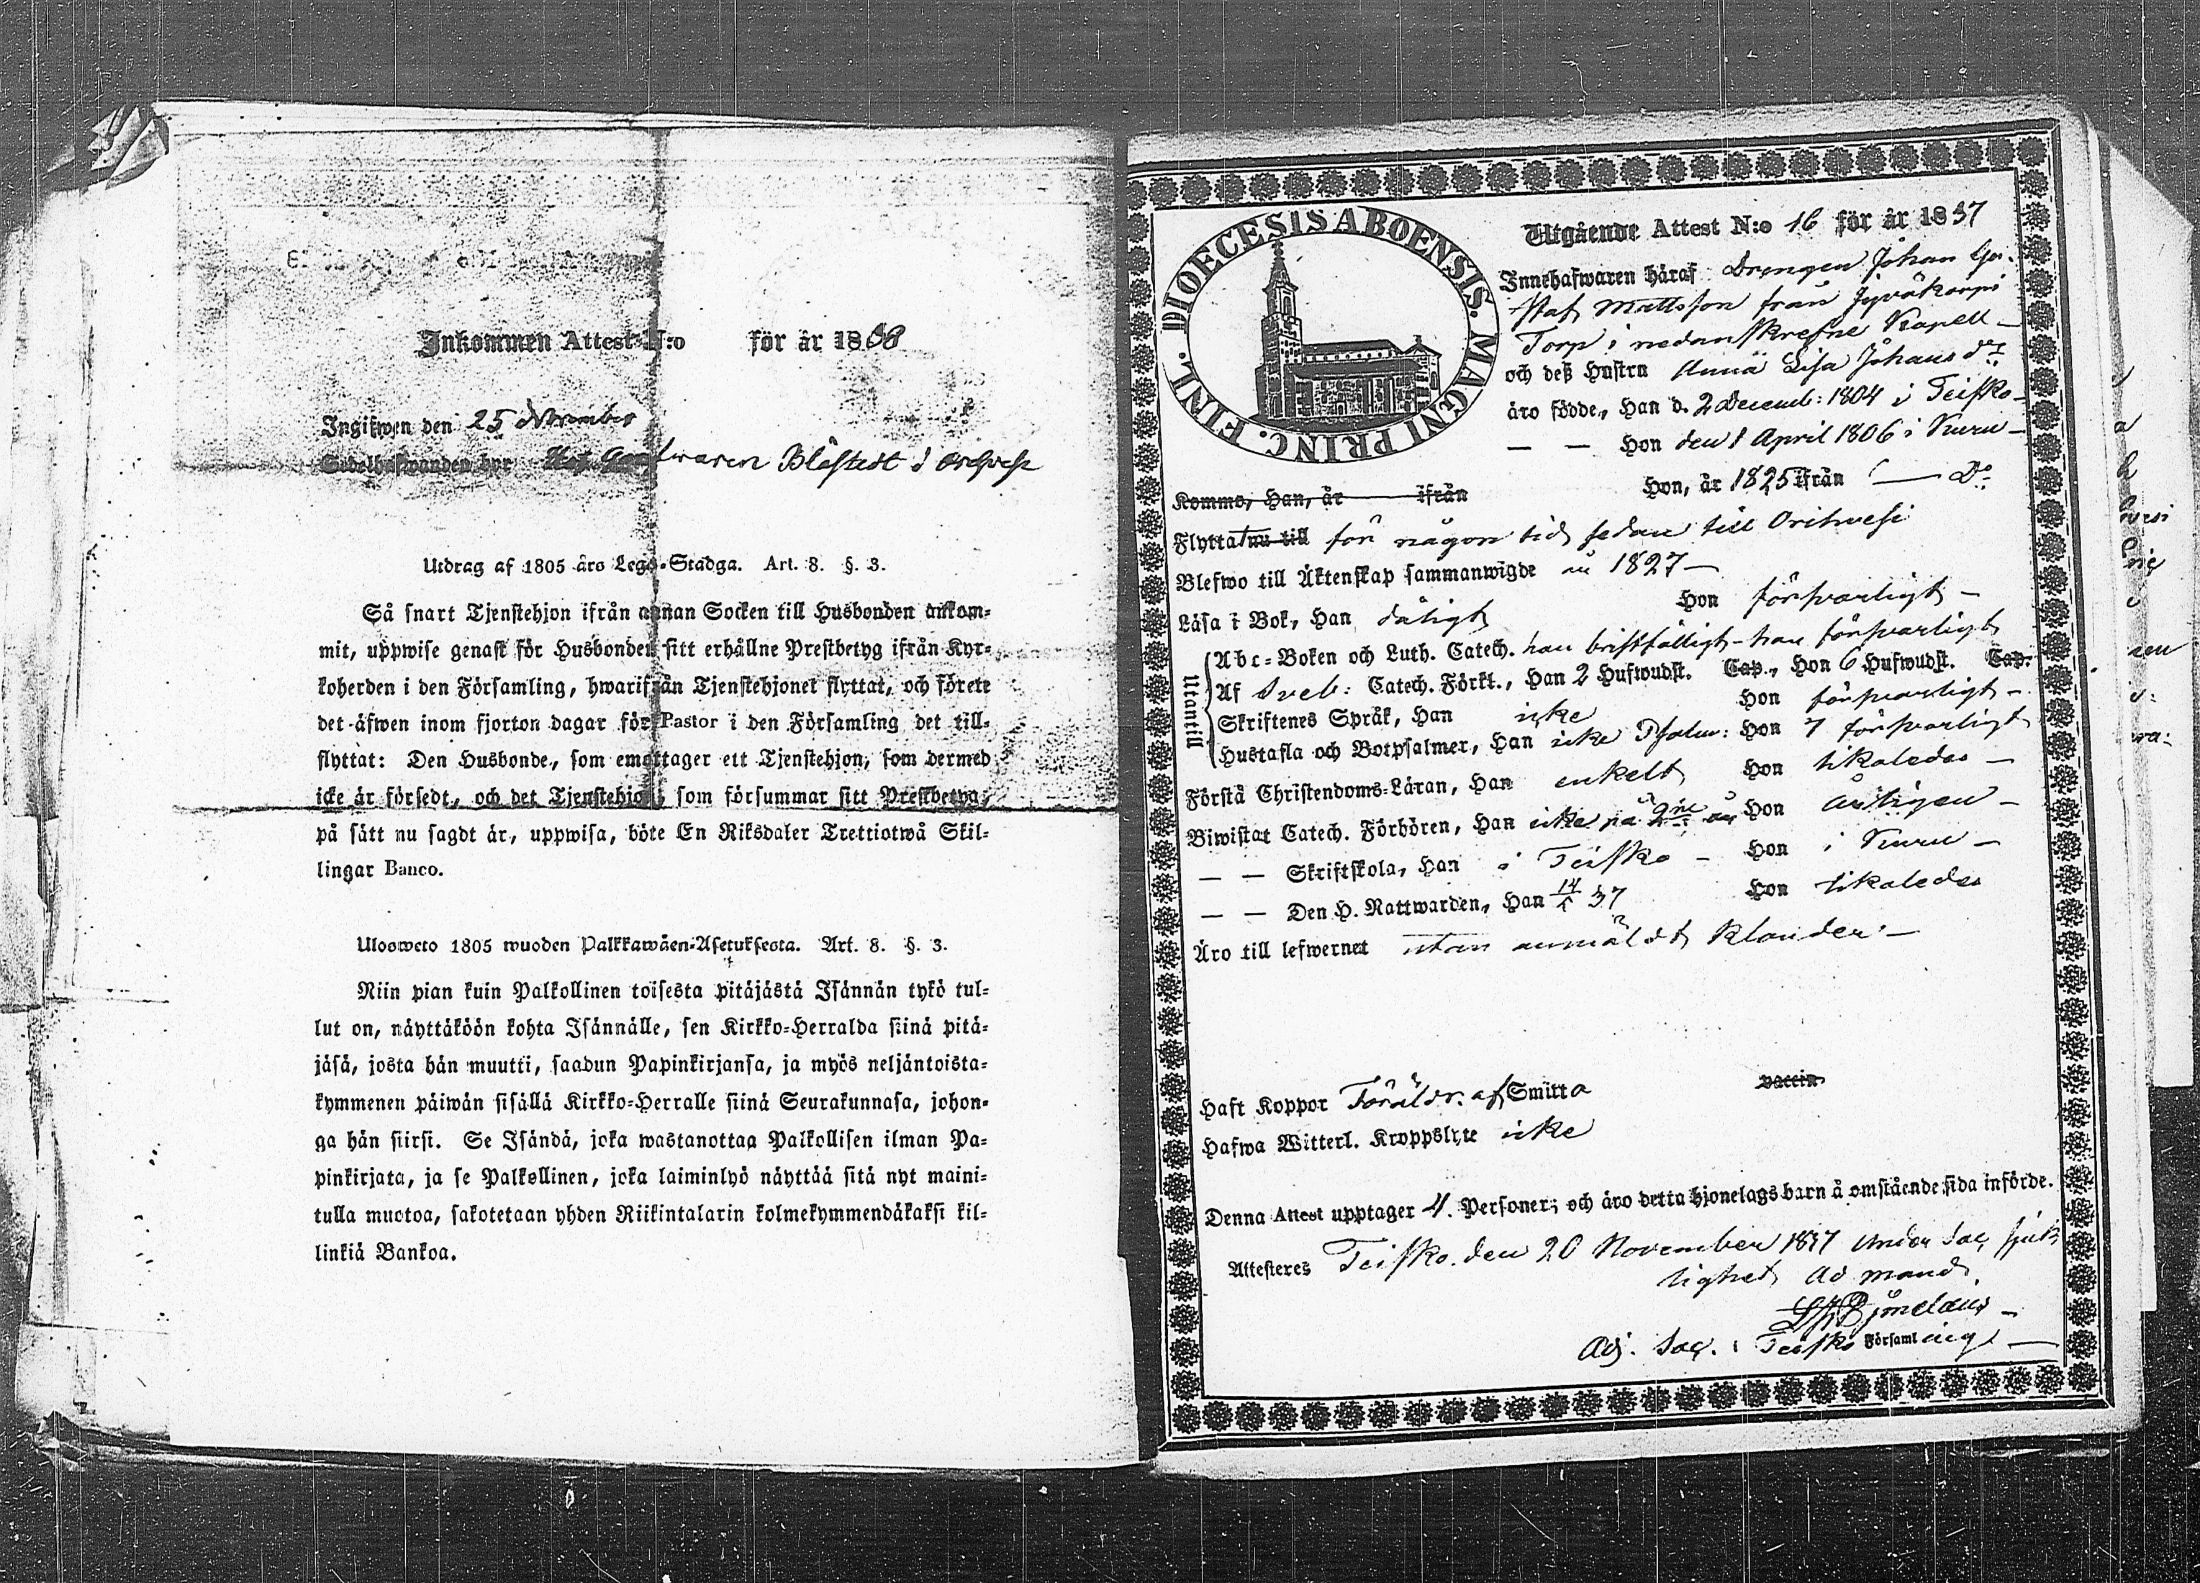 Inkommen Attest N:o för år 1838
Ingifwen den 25 November
Sedelhafwanden bor waren Blåstedt i
Utdrag af 1805 års Lego-Stadga. Art. 8. §. 3.
Så snart Tjenstehjon ifrån annan Socken till Husbonden ankom-
mit, uppwise genast för Husbonden sitt erhållne Prestbetyg ifrån Kyr-
koherden i den Församling, hwarifrån Tjenstehjonet flyttat, och förete
det äfwen inom fjorton dagar för Pastor i den Församling det till-
flyttat: Den Husbonde, som emottager ett Tjenstehjon, som dermed
icke är försedt, och det Tjenstehjon, som försummar sitt Prestbetyg,
på sätt nu sagdt är, uppwisa, böte En Riksdaler Trettiotwå Skil-
lingar Banco.
Ulosweto 1805 wuoden Palkkawäen-Asetuksesta. Art. 8. §. 3.
Niin pian kuin Palkollinen toisesta pitäjästä Isännän tykö tul-
lut on, näyttäköön kohta Isännälle, sen Kirkko-Herralda siinä pitä-
jäsä, josta hän muutti, saadun Papinkirjansa, ja myös neljäntoista-
kymmenen päiwän sisällä Kirkko-Herralle siinä Seurakunnasa, johon-
ga hän siirsi. Se Isändä, joka wastanottaa Palkollisen ilman Pa-
pinkirjata, ja se Palkollinen, joka laiminlyö näyttää sitä nyt maini-
tulla muotoa, sakotetaan yhden Riikintalarin kolmekymmendäkaksi kil-
linkiä Bankoa.
DIOECESIS ABOENSIS. MAGNI PRINC. FINL.
Utgående Attest N:o 16 för år 1837
Innehafwaren häraf Drengen Johan Gu-
staf Mattsson från Jyväkorpi
Torp i nedanskrefne Kapell
och deß Hustru Anna Lisa Johansdr
äro födde, Han d. 2 Decemb: 1804 i Teisko
— — Hon den 1 April 1806 i Kuru
Komme, Han, år ifrån Hon, år 1825 ifrån Do
Flyttat nu till för någon tid sedan till Orihvesi
Blefwo till Äktenskap sammanwigde år 1827
Läsa i Bok, Han dåligt Hon förswarligt
Utantill
Abc-Boken och Luth. Catech. han bristfälligt - hon förswarligt
Af Sveb: Catech. Förkl., Han 2 Hufwudst. Cap., Hon 6 Hufwudst. Cap.
Skriftenes Språk, Han icke Hon förswarligt
Hustafla och Botpsalmer, Han icke Psalm: Hon 7 förswarligt
Förstå Christendoms-Läran, Han enkelt Hon likaledes
Biwistat Catech. Förhören, Han icke på 2ne år Hon årligen
— — Skriftskola, Han i Teisko Hon i Kuru
— — Den H. Nattwarden, Han 37 Hon likaledes
Äro till lefwernet utan anmäldt klander
Haft Koppor Föräldr. af Smitta vaccin
Hafwa Witterl. Kroppslyte icke
Denna Attest upptager 4. Personer; och äro detta hjonelags barn å omstående sida införde.
Attesteres Teisko den 20 November 1837 under Sac. sjuk
lighet Ad mand.
Adj. Sac. i Teisko Församling